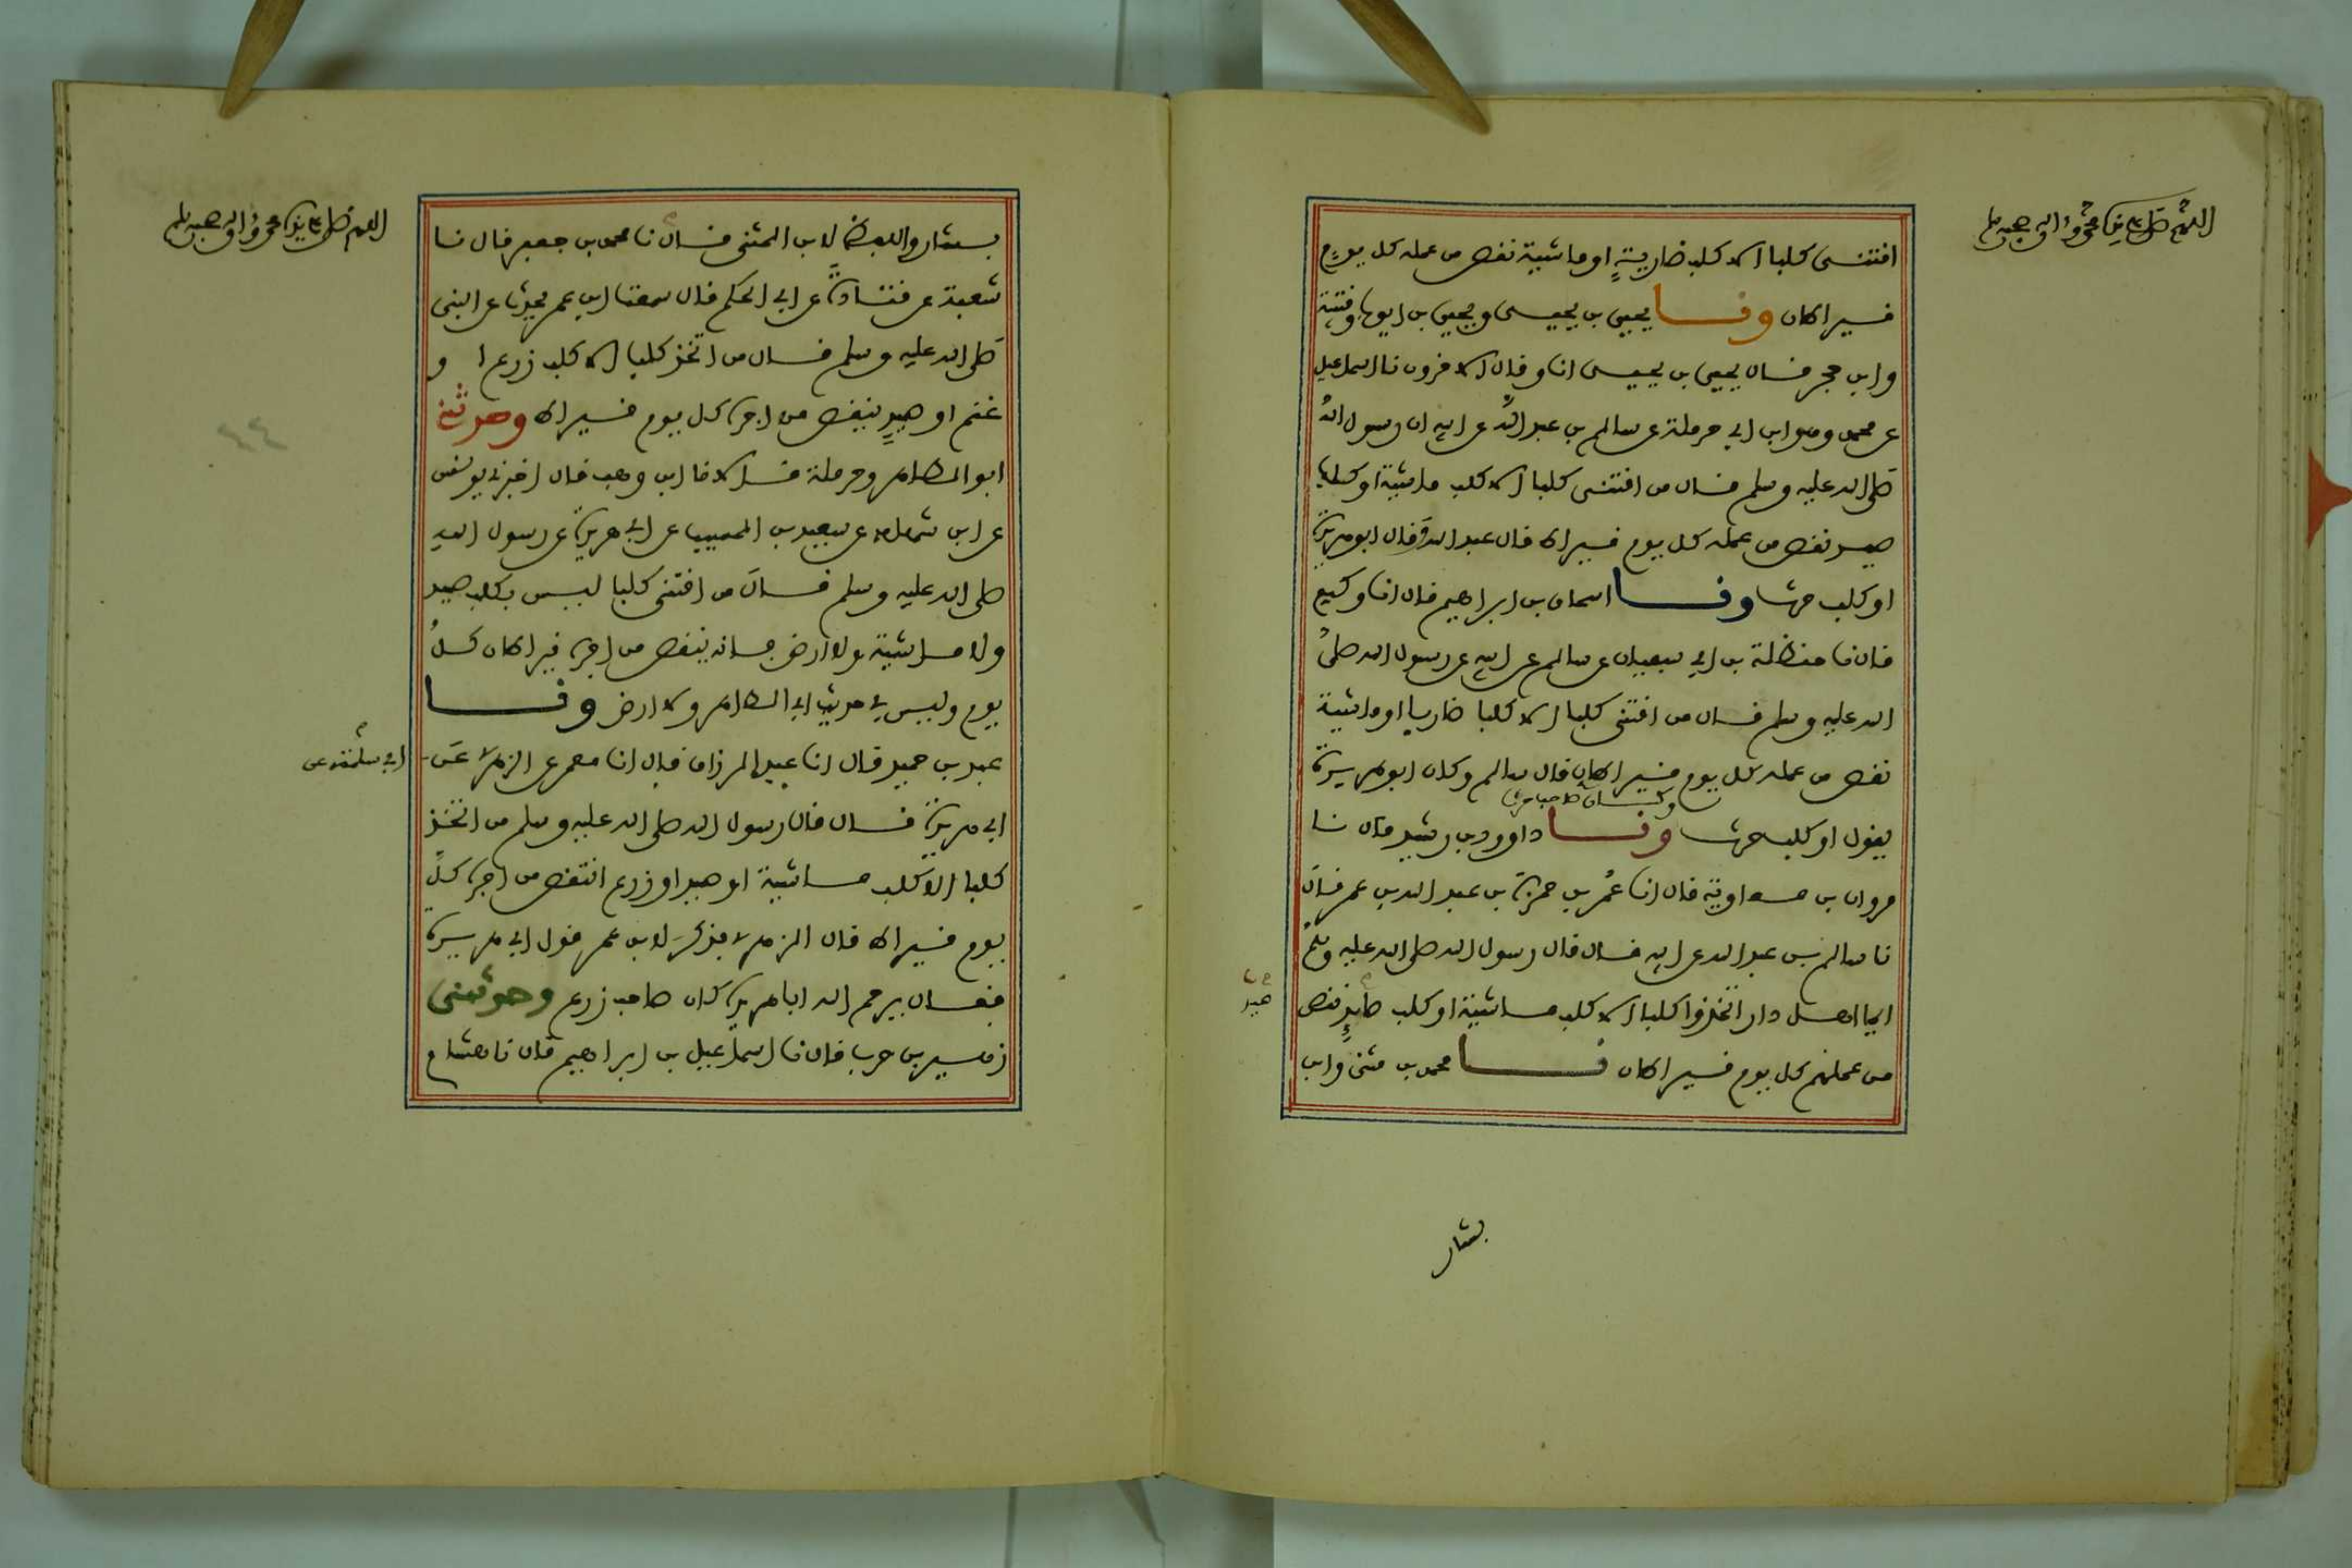 اللهم صل على سيدنا محمد وءاله وصحبه وسلم
اقتنى كلبا الا كلب ضارية او ماشية نقص من عمله كل يوم
قيراطان ونا يحيى بن يحيى ويحيى بن ايوب وقتيبة
وابن حجر قال يحيى بن يحيى انا وقال الاخرون نا اسماعيل
عن محمد وهو ابن ابي حرملة عن سالم بن عبد الله عن ابيه ان رسول الله
صلى الله عليه وسلم قال من اقتنى كلبا الا كلب ماشية او كلب
صيد نقص من عمله كل يوم قيراط قال عبد الله وقال ابو هريرة
او كلب حرث ونا اسحاق بن ابراهيم قال انا وكيع
قال نا حنظلة بن ابي سفيان عن سالم عن ابيه عن رسول الله صلى
الله عليه وسلم قال من اقتنى كلبا الا كلبا ضاريا او ماشية
نقص من عمله كل يوم قيراطان قال سالم وكان ابو هريرة
وكان صاحب حرث
يقول او كلب حرث ونا داوود بن رشيد قال نا
مروان بن معاوية قال انا عمر بن حمزة بن عبد الله بن عمر قال
نا سالم بن عبد الله عن ابيه قال قال رسول الله صلى الله عليه وسلم
ايما اهل دار اتخذوا كلبا الا كلب ماشية او كلب صايد نقص
صيد
من عملهم كل يوم قيراطان نا محمد بن مثنى وابن
بشار
اللهم صل على سيدنا محمد وءاله وصحبه وسلم
بشار واللفظ لابن المثنى قال نا محمد بن جعفر قال نا
شعبة عن قتادة عن ابي الحكم قال سمعت ابن عمر يحدث عن النبي
صلى الله عليه وسلم قال من اتخذ كلبا الا كلب زرع ا و
غنم او صيد ينقص من اجره كل يوم قيراط وحدثني
ابو الطاهر وحرملة قالا نا ابن وهب قال اخبرني يونس
عن ابن شهاب عن سعيد بن المسيب عن ابي هريرة عن رسول الله
صلى الله عليه وسلم قال من اقتنى كلبا ليس بكلب صيد
ولا ماشية ولا ارض فانه ينقص من اجره قيراطان كل
يوم وليس في حديث ابي الطاهر ولا ارض ونا
عبد بن حميد قال انا عبد الرزاق قال انا معمر عن الزهري عن
ابي سلمة عن
ابي هريرة قال قال رسول الله صلى الله عليه وسلم من اتخذ
كلبا الا كلب ماشية او صيد او زرع انتقص من اجره كل
يوم قيراط قال الزهري فذكر لابن عمر قول ابي هريرة
فقال يرحم الله ابا هريرة كان صاحب زرع وحدثني
زهير بن حرب قال نا اسماعيل بن ابراهيم قال نا هشام